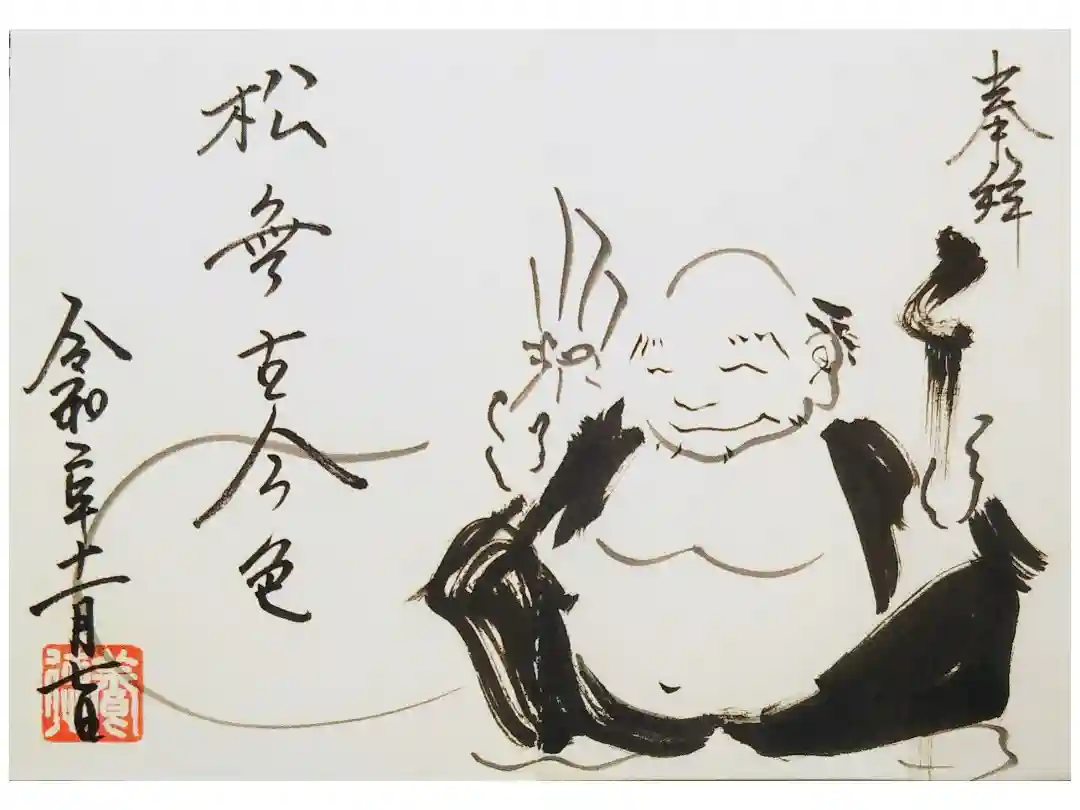 奉拝
松無古今色
令和二年十一月七日